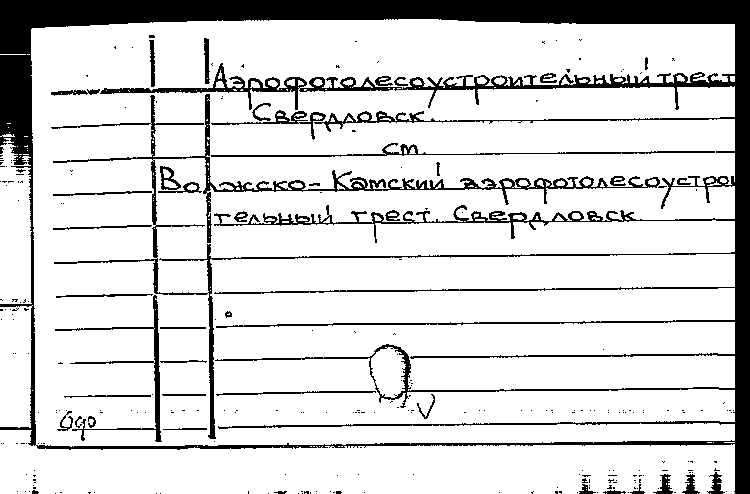 Аэрофотолесоустроительный трест
Свердловск.
см.
Волжско-Камский аэрофотолесоустрои
тельный трест. Свердловск